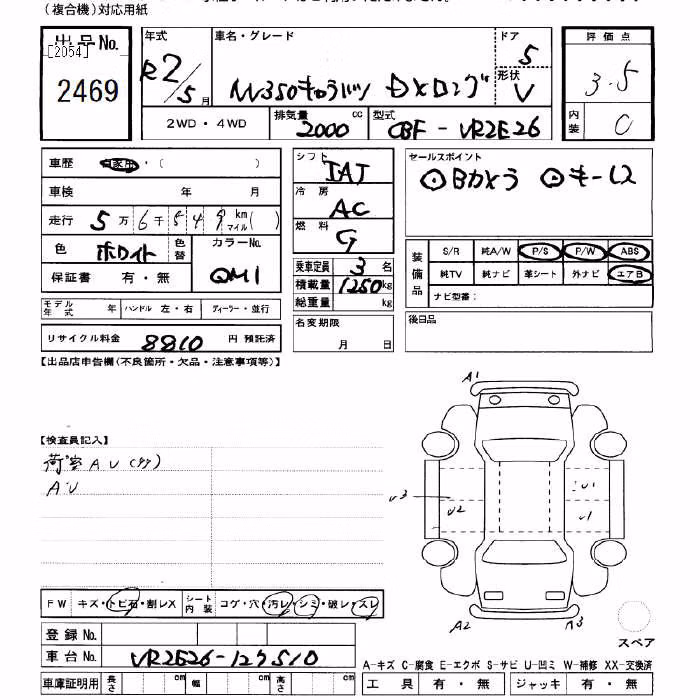 (複合機)対応用紙
出品No. [2054] 2469
年式 R2/5月
車名・グレード NV350キャラバン DXロング
ドア 5
形状 V
評価点 3.5
内装 C
2WD・4WD
排気量 2000 cc
型式 CBF-VR2E26
車歴 自家用・( )
車検 年 月
走行 5万6千549 km マイル( )
色 ホワイト 色替 カラーNo. QM1
保証書 有・無
モデル年式 年 ハンドル 左・右 ディーラー・並行
リサイクル料金 8810 円 預託済
シフト IAT
冷房 AC
燃料 G
乗車定員 3 名
積載量 1250 kg
総重量 kg
名変期限 月 日
セールスポイント
◎Bカメラ ◎キーレス
装備品 S/R 純A/W P/S P/W ABS
純TV 純ナビ 革シート 外ナビ エアB
ナビ型番:
後日品
【出品店申告欄(不良箇所・欠品・注意事項等)】
【検査員記入】
荷室AU
AU
A1
U3
U2
U1
U1
A2
A3
スペア
FW キズ・トビ石・割レX シート内装 コゲ・穴・汚レ・シミ・破レ・スレ
登録No.
車台No. VR2E26-127510
車庫証明用 長さ cm 幅 cm 高さ cm
A-キズ C-腐食 E-エクボ S-サビ U-凹ミ W-補修 XX-交換済
工具 有・無 ジャッキ 有・無